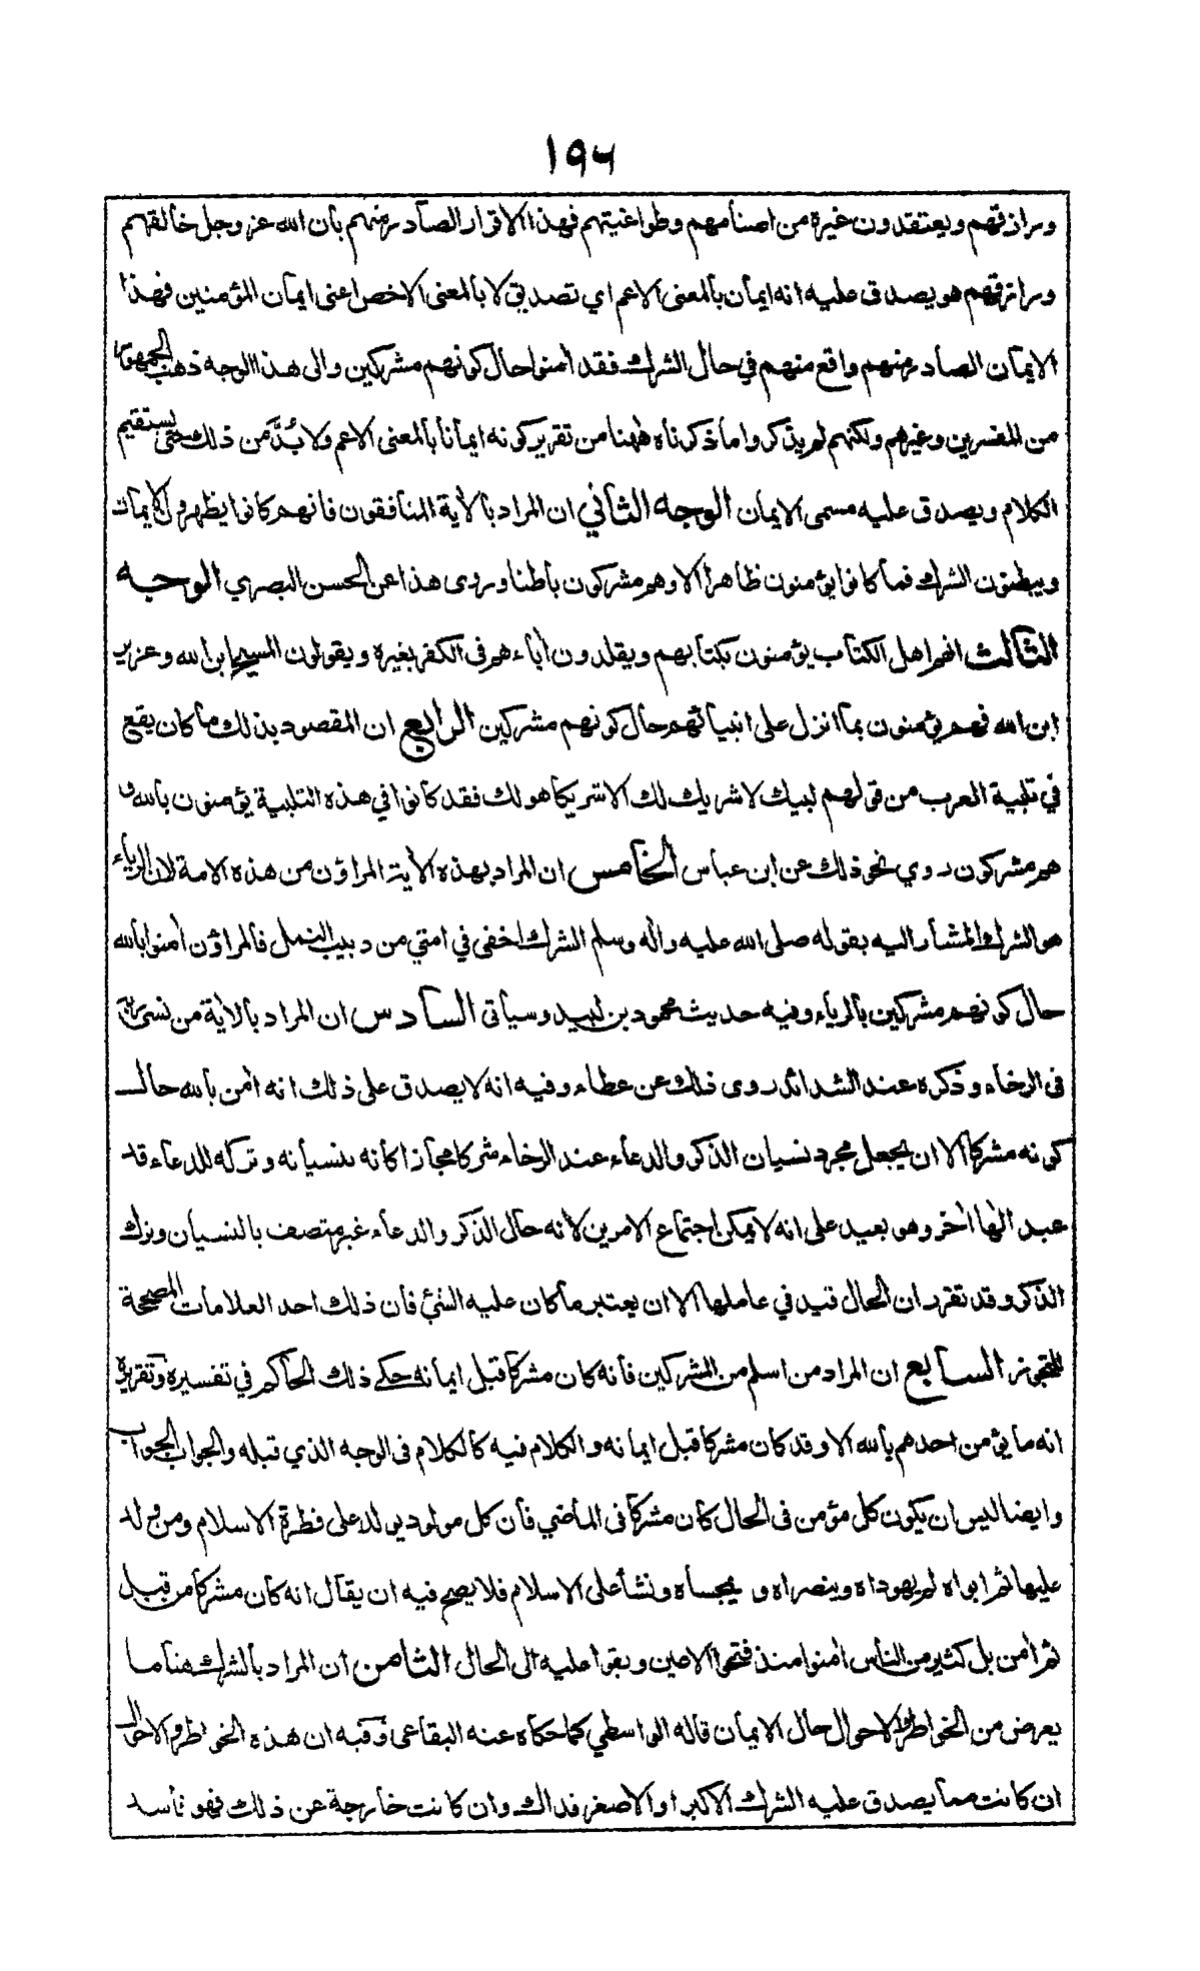 ١٩٦
ورازقهم ويعتقدون غيره من اصنامهم وطواغيتهم فهذا الاقرار الصادر منهم بأن الله عز وجل خالقهم
ورازقهم هو يصدق عليه انه ايمان بالمعنى الاعم اي تصديق لا بالمعنى الاخص اعنى ايمان المؤمنين فهذا
الايمان الصادر منهم واقع منهم في حال الشرك فقد اٰمنوا حال كونهم مشركين والى هذا الوجه ذهب الجمهور
من المفسرين وغيرهم ولكنهم لم يذكروا ما ذكرناه ههنا من تقرير كونه ايمانا بالمعنى الاعم ولا بُدَّ من ذلك حتى يستقيم
الكلام ويصدق عليه مسمى الايمان الوجه الثاني ان المراد بالأية المنافقون فانهم كانوا يظهرون الايمان
ويبطنون الشرك فما كانوا يؤمنون ظاهرا الا وهم مشركون باطنا وروى هذا عن الحسن البصري الوجه
الثالث انهم اهل الكتاب يؤمنون بكتابهم ويقلدون اٰباءهم فى الكفر بغيره ويقولون المسيح ابن الله وعزير
ابن الله فهم يؤمنون بما انزل على انبيائهم حال كونهم مشركين الرابع ان المقصود بذلك ما كان يقع
في تلبية العرب من قولهم لبيك لا شريك لك الا شريكا هو لك فقد كانوا في هذه التلبية يؤمنون بالله و
هم مشركون روي نحو ذلك عن ابن عباس الخامس ان المراد بهذه الأية المراؤن من هذه الامة لان الرياء
هو الشرك المشار اليه بقوله صلى الله عليه واٰله وسلم الشرك اخفى في امتي من دبيب النمل فالمراؤن اٰمنوا بالله
حال كونهم مشركين بالرياء وفيه حديث محمود بن لبيد وسيأتى السادس ان المراد بالأية من نسي ربه
فى الرخاء وذكره عند الشدائد روى ذلك عن عطاء وفيه انه لا يصدق على ذلك انه اٰمن بالله حال
كونه مشركا الا ان يجعل مجرد نسيان الذكر والدعاء عند الرخاء شركا مجازا كأنه بنسيانه وتركه للدعاء قد
عبد الٰها اٰخر وهو بعيد على انه لا يمكن اجتماع الامرين لانه حال الذكر والدعاء غير متصف بالنسيان وترك
الذكر وقد تقرر ان الحال قيد في عاملها الا ان يعتبر ما كان عليه الشئ فان ذلك احد العلامات المصححة
للتجوز السابع ان المراد من اسلم من المشركين فانه كان مشركا قبل ايمانه حكى ذلك الحاكم في تفسيره وتقريره
انه ما يؤمن احدهم بالله الا وقد كان مشركا قبل ايمانه والكلام فيه كالكلام فى الوجه الذي قبله والجواب الجواب
وايضا ليس ان يكون كل مؤمن فى الحال كان مشركا فى الماضي فان كل مولود يولد على فطرة الاسلام ومن ولد
عليها ثم ابواه لم يهوداه وينصراه و يمجساه ونشأ على الاسلام فلا يصح فيه ان يقال انه كان مشركا من قبل
ثم اٰمن بل كثير من الناس اٰمنوا منذ فتحوا الاعين وبقوا عليه الى الحال الثامن ان المراد بالشرك هنا ما
يعرض من الخواطر والاحوال حال الايمان قاله الواسطي كما حكاه عنه البقاعى وفيه ان هذه الخواطر والاحوال
ان كانت مما يصدق عليه الشرك الاكبر او الاصغر فذاك وان كانت خارجة عن ذلك فهو فاسد